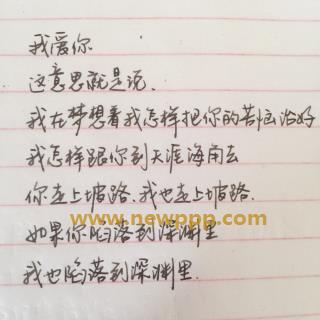 我爱你
这意思就是说.
我在梦想着我怎样把你的苦恼治好
我怎样跟你到天涯海角去
你走上坡路.我也走上坡路.
www.newppp.com
如果你陷落到深渊里
我也陷落到深渊里.